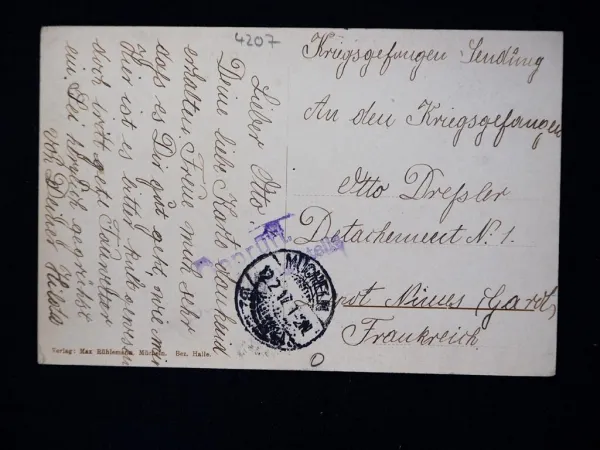 4207
Kriegsgefangen Sendung
An den Kriegsgefangen
Otto Dressler
Detachement N: 1.
Nimes (Gard)
Frankreich.
Lieber Otto!
Deine liebe Karte dankend
erhalten. Freue mich sehr
dass es Dir gut geht, wie mir
Hier ist es bitter kalt gewesen
doch tritt jetzt Tauwetter
ein. Sei herzlich gegrüsst
von Deiner Hilda
Geprüft
MÜCHELN
12.2.17. 1-2N
Verlag: Max Röhlemann, Mücheln. Bez. Halle.